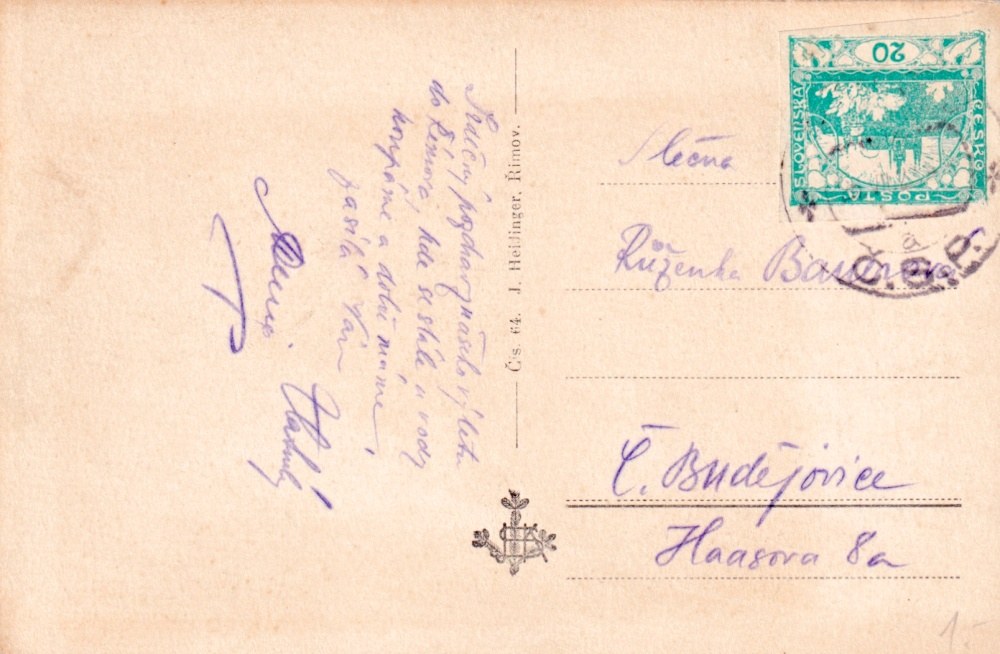 Srdečný pozdrav z našeho výletu
do Římova, kde se stále u vody
koupáme a dobře máme,
zasílá Vám
Čís. 64. J. Heidinger, Římov.
ČESKO
SLOVENSKÁ
POŠTA
20
Slečna
Růženka Bauerova
Č. Budějovice
Haasova 8a
1.-